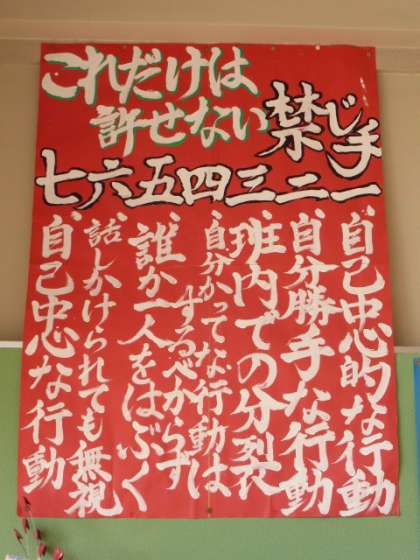 これだけは
許せない
禁じ手
一 二 三 四 五 六 七
自己中心的な行動
自分勝手な行動
班内での分裂
自分かってな行動は
するべからず
誰か一人をはぶく
話しかけられても無視
自己中心な行動